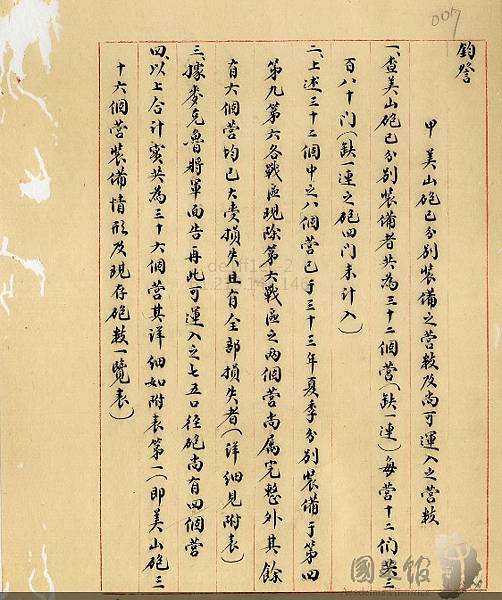 007
鈞詧
甲 美山砲已分別裝備之營數及尚可運入之營數
一、查美山砲已分別裝備者共為三十二個營(缺一連)每營十二門共三
百八十門(缺一連之砲四門未計入)
二、上述三十二個中之八個營已于三十三年夏季分別裝備于第四
第九第六各戰區現除第六戰區之兩個營尚屬完整外其餘
有六個營均已大受損失且有全部損失者(詳細見附表)
三、據麥克魯將軍面告再此可運入之七五口徑砲尚有四個營
四、以上合計實共為三十六個營其詳細如附表第一(即美山砲三
十六個營裝備情形及現存砲數一覽表)
國史館